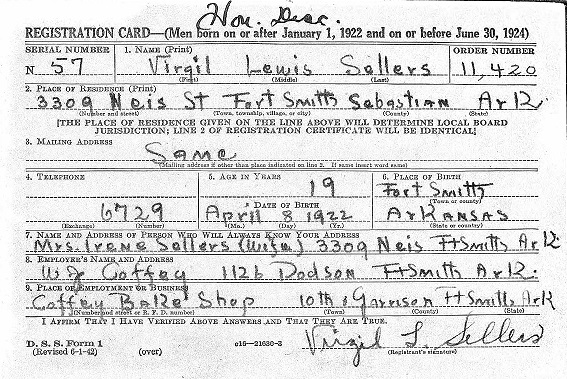 Hon. Disc.
REGISTRATION CARD—(Men born on or after January 1, 1922 and on or before June 30, 1924)
SERIAL NUMBER 1. NAME (Print) ORDER NUMBER
N 57 Virgil Lewis Sellers 11,420
(First) (Middle) (Last)
2. PLACE OF RESIDENCE (Print)
3309 Neis St Fort Smith Sebastian Ark.
(Number and street) (Town, township, village, or city) (County) (State)
[THE PLACE OF RESIDENCE GIVEN ON THE LINE ABOVE WILL DETERMINE LOCAL BOARD
JURISDICTION; LINE 2 OF REGISTRATION CERTIFICATE WILL BE IDENTICAL]
3. MAILING ADDRESS
Same
[Mailing address if other than place indicated on line 2. If same insert word same]
4. TELEPHONE 5. AGE IN YEARS 6. PLACE OF BIRTH
19 Fort Smith
(Town or county)
DATE OF BIRTH
6729 April 8 1922 Arkansas
(Exchange) (Number) (Mo.) (Day) (Yr.) (State or country)
7. NAME AND ADDRESS OF PERSON WHO WILL ALWAYS KNOW YOUR ADDRESS
Mrs. Irene Sellers (Wife) 3309 Neis Ft Smith Ark
8. EMPLOYER'S NAME AND ADDRESS
Coffey 1126 Dodson Ft Smith Ark.
9. PLACE OF EMPLOYMENT OR BUSINESS
Coffey Bake Shop 10th & Garrison Ft Smith Ark
(Number and street or R. F. D. number) (Town) (County) (State)
I AFFIRM THAT I HAVE VERIFIED ABOVE ANSWERS AND THAT THEY ARE TRUE.
D. S. S. Form 1
(Revised 6-1-42) (over) c16—21630-2 Virgil L. Sellers
(Registrant's signature)